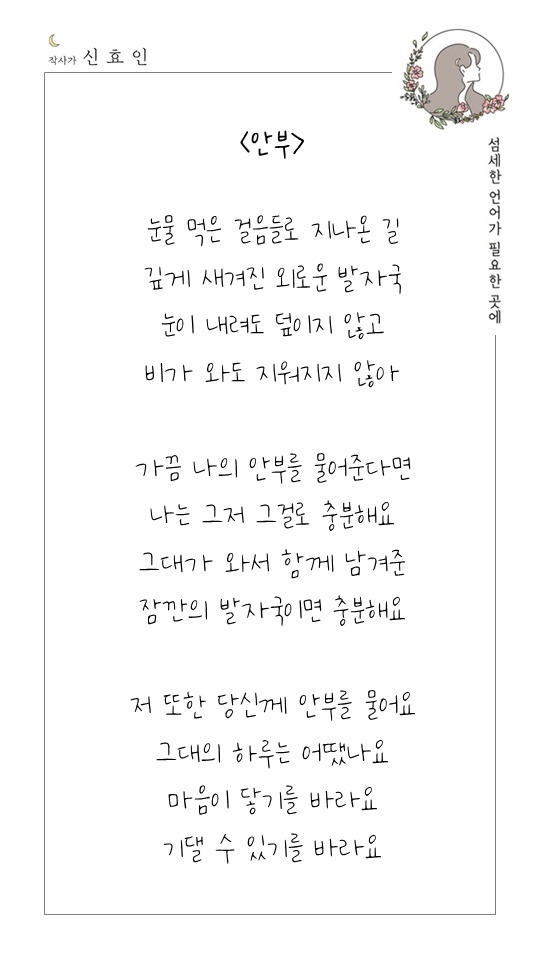 작사가 신효인
섬세한 언어가 필요한 곳에
<안부>
눈물 먹은 걸음들로 지나온 길
깊게 새겨진 외로운 발자국
눈이 내려도 덮이지 않고
비가 와도 지워지지 않아
가끔 나의 안부를 물어준다면
나는 그저 그걸로 충분해요
그대가 와서 함께 남겨준
잠깐의 발자국이면 충분해요
저 또한 당신께 안부를 물어요
그대의 하루는 어땠나요
마음이 닿기를 바라요
기댈 수 있기를 바라요